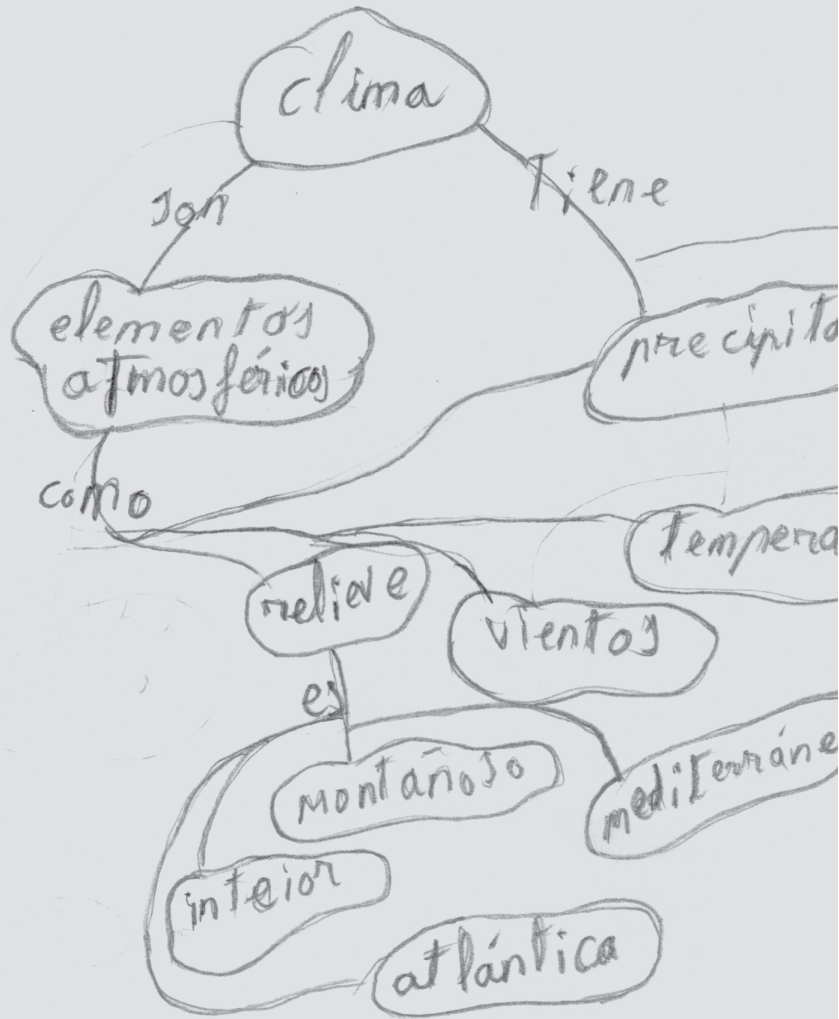 clima
son
Tiene
elementos
atmosféricos
precipita
como
tempera
relieve
vientos
es
montañoso
mediterráne
inteior
atlántica